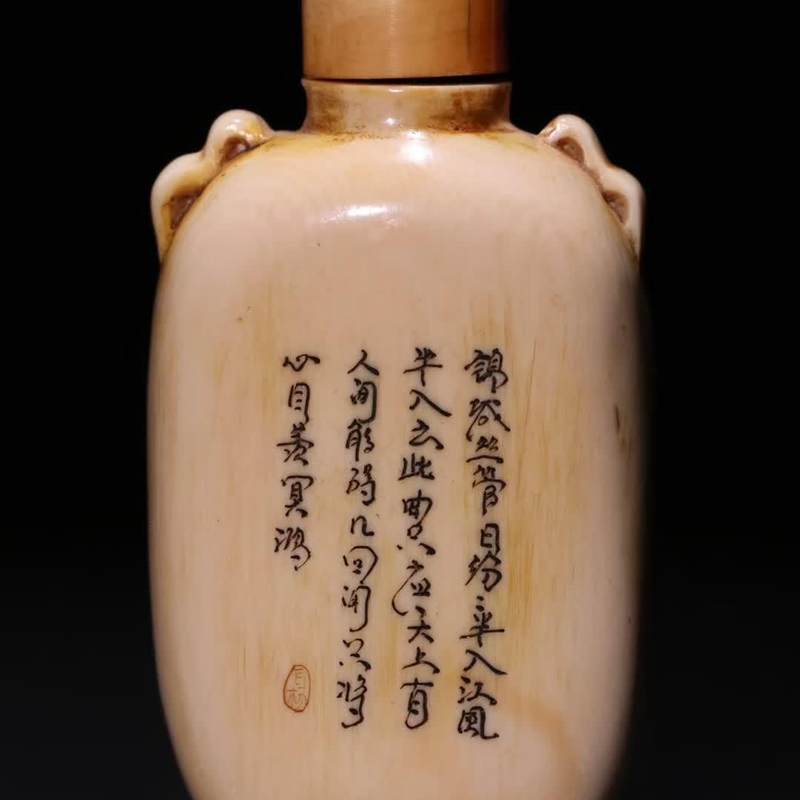 錦城丝管日纷〻半入江風
半入云此曲只应天上有
人间能得几回闻只将
心目羡冥鸿